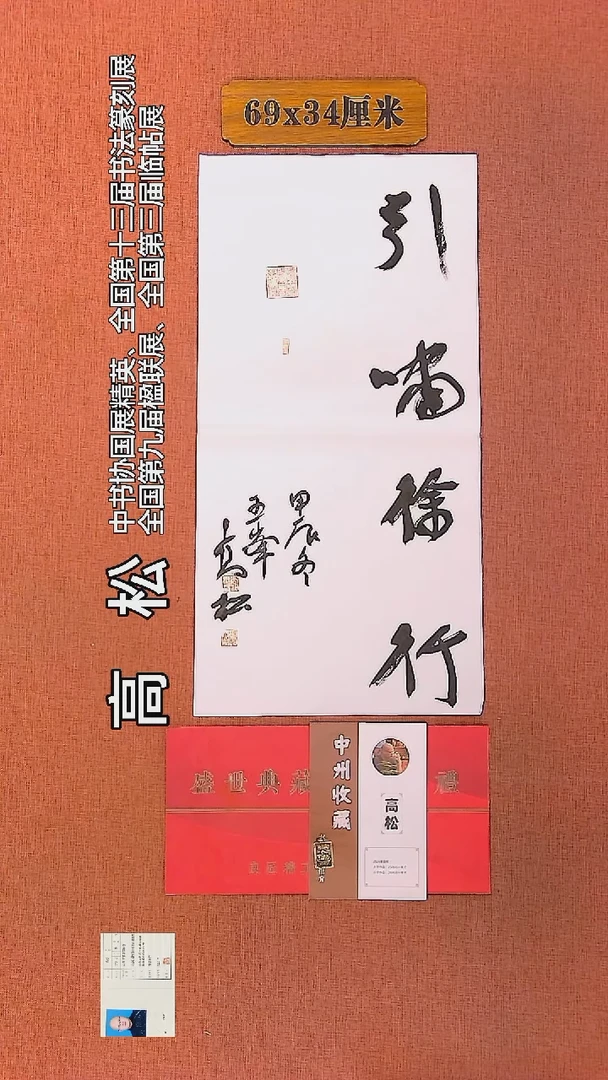 69x34厘米
引啸徐行
甲辰冬
玉峰
高松
高松
中书协国展精英、全国第十三届书法篆刻展
全国第九届楹联展、全国第三届临帖展
盛世典藏
禮
中州收藏
高松